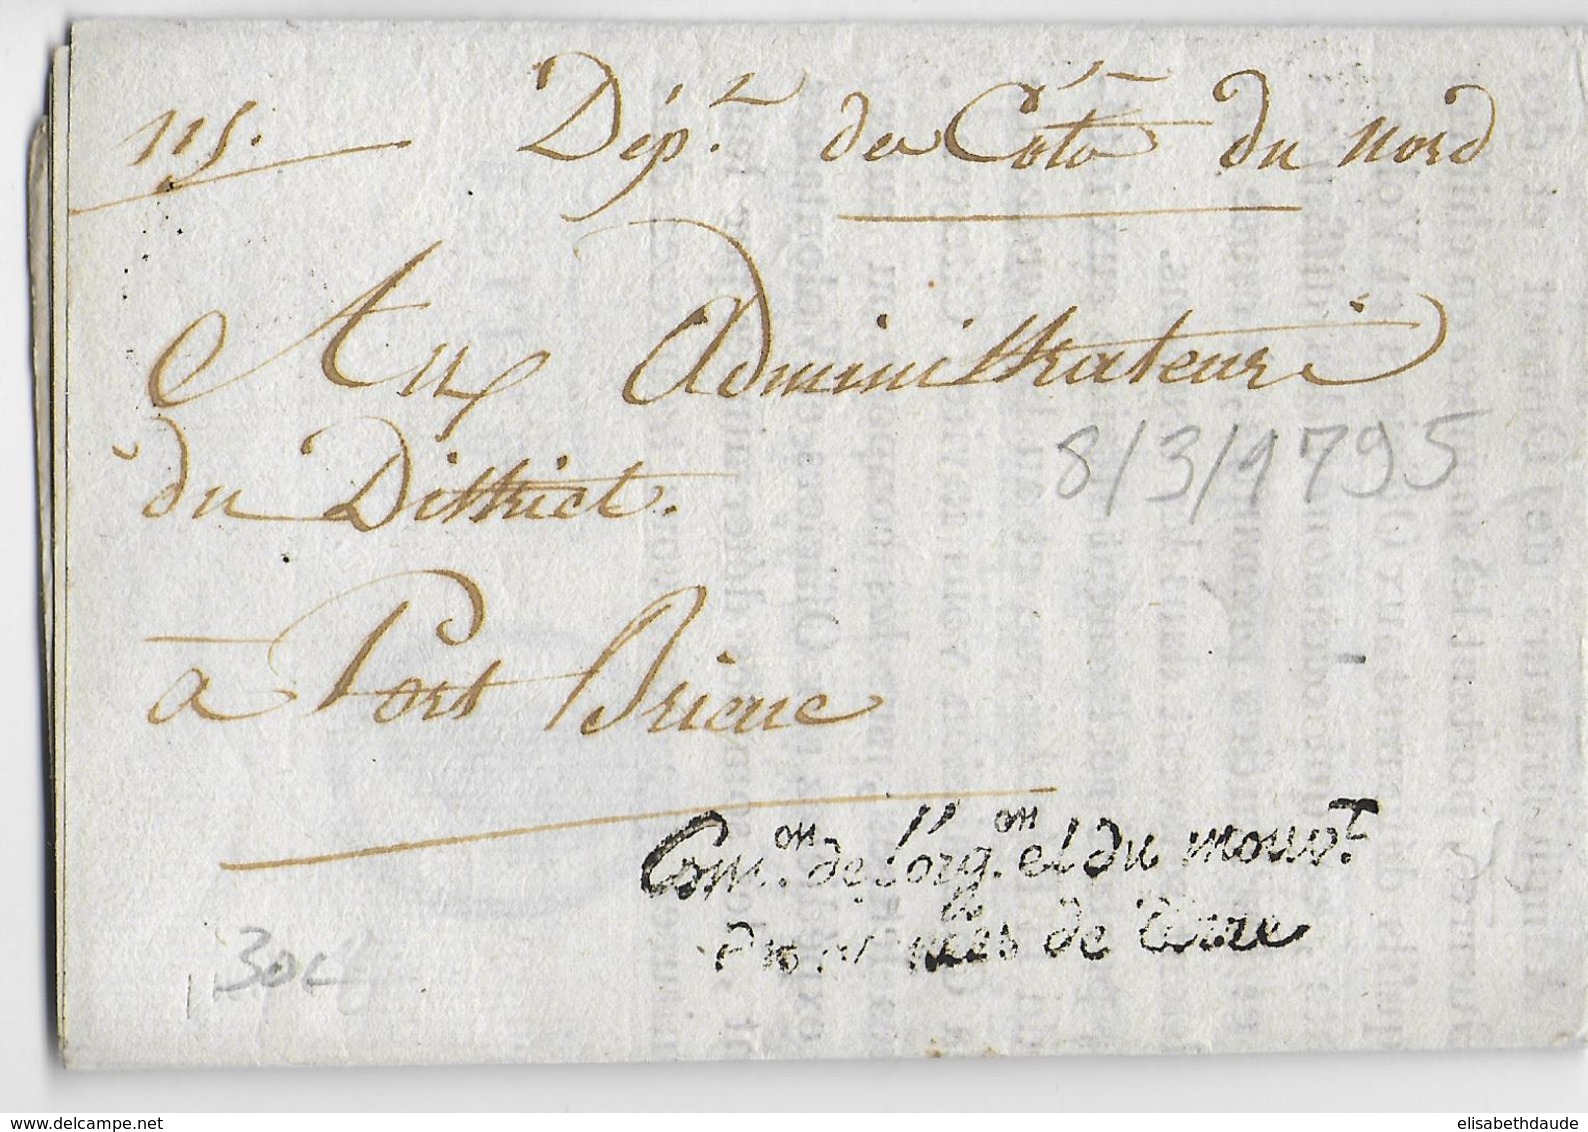 115. Dép.t des Côtes du Nord
Aux Administrateurs
du District.
à Port Brieuc
8/3/1795
Com.on de l'org.on et du mouv.t
des armées de terre
30
elisabethdaude